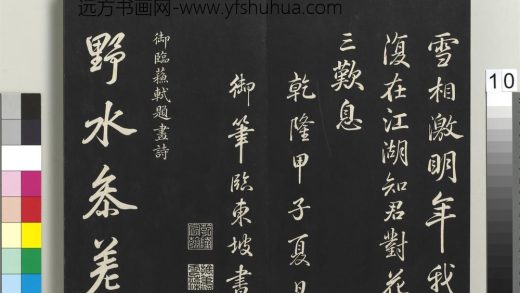 远方书画网-www.yfshuhua.com
雪相激明年我
復在江湖知君對花
三歎息
乾隆甲子夏日
御筆臨東坡書
御臨蘇軾題畫詩
野水叅差
10